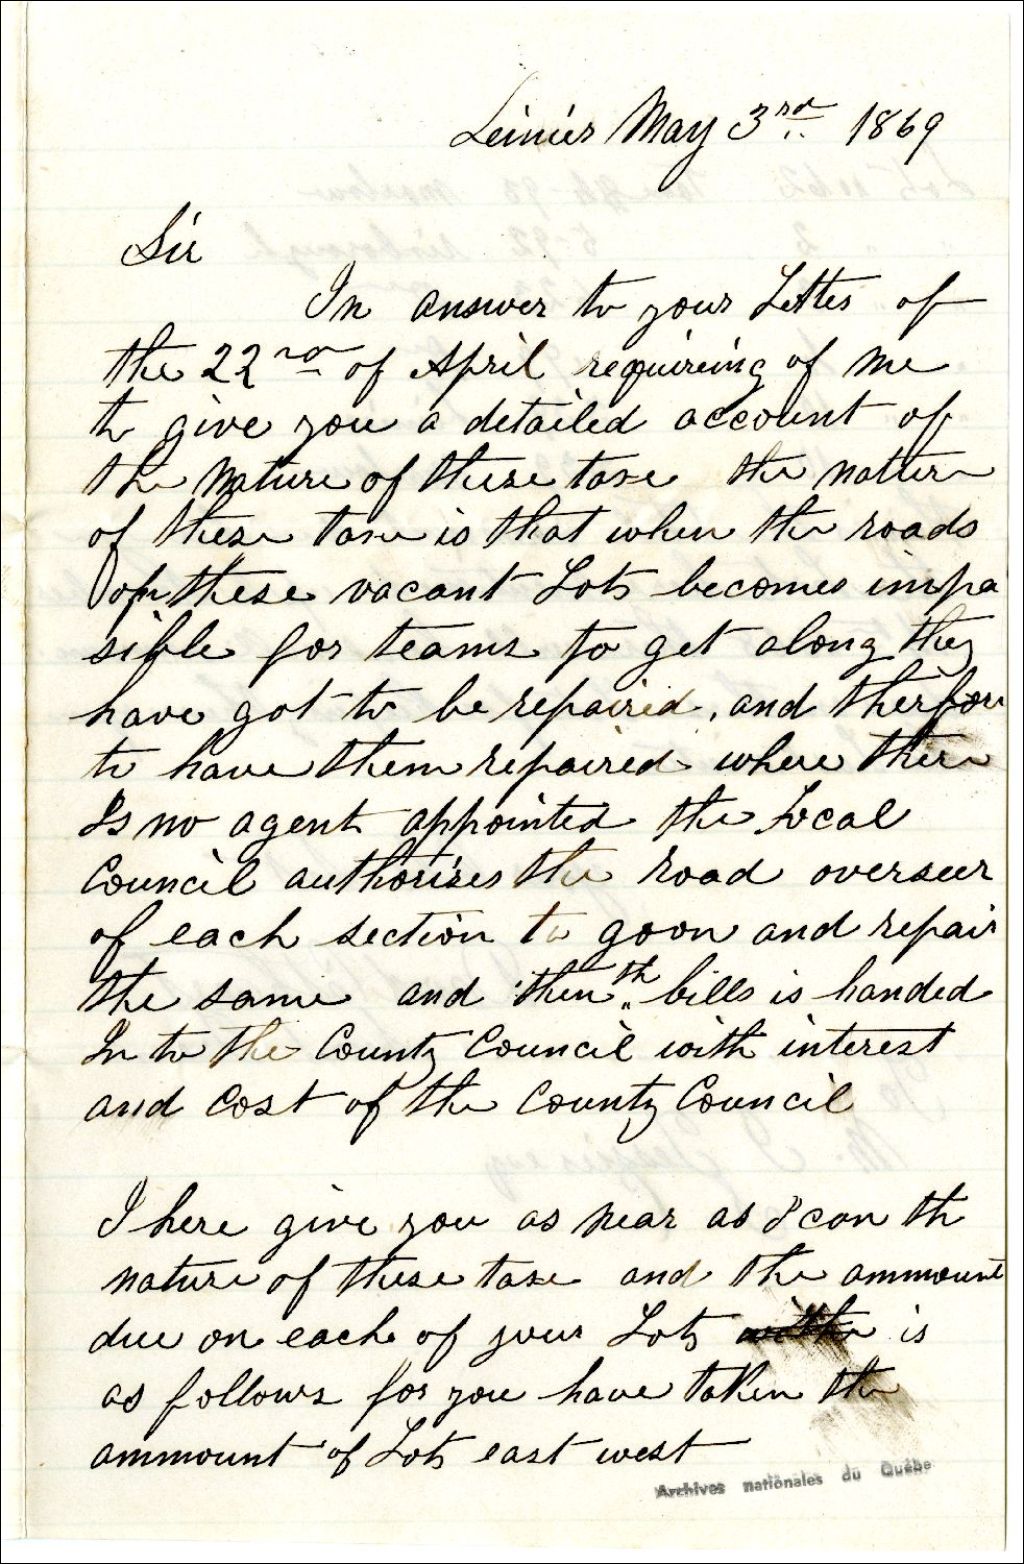 Linier May 3rd 1869
Sir
In answer to your Letter of
the 22nd of April requireing of me
to give you a detailed account of
the Nature of these taxe the natture
of these taxe is that when the roads
on these vacant Lots becomes impa
sible for teams to get along they
have got to be repaired, and therfore
to have them repaired where there
Is no agent appointed the Local
Council authorises the road overseer
of each section to goon and repair
the same and then th bills is handed
In to the County Council with interest
and cost of the County Council
I here give you as near as I can the
nature of these taxe and the ammount
due on each of your Lots is
as follows for you have taken the
ammount of Lots east west
Archives nationales du Québe